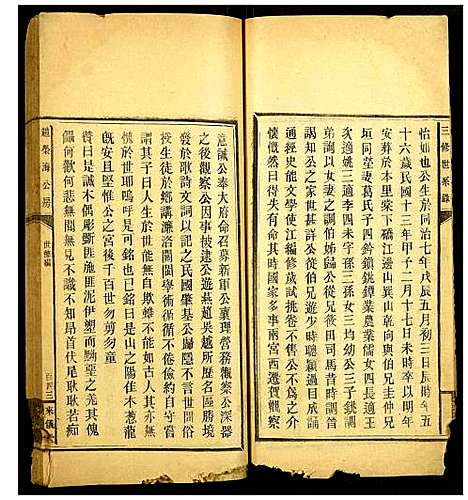 三修世系錄
怡如也公生於同治七年戊辰五月初三日辰時年五
十六歲民國十三年甲子二月十七日未時卒以明年
安葬於本里柴下礄江邊吳山乾向與伯兄生仲兄
垣同塋妻葛氏子四鈐鎮銚鐸業農業儒女四長適王
次適姚三適李四未字孫三孫女三均幼公三子銚調
弟詢以女妻之調伯姊歸公從兄篠田司馬昔時濂
謁知公之家世甚詳公從伯兄遊少時聰穎過人由縣
通經史能文學使江編修試輒挑不售公不為之介
懷慨然曰得失有命其時國家多事兩宮西遷賀觀察
意誠公奉大府命召募新軍公襄理營務觀察公深器
之後觀察公因事被逮公遊燕趙吳越所歷名區勝境
發於歌詩文詞以之記之民國肇基公歸隱不言世間俗
授生徒於鄉講濂洛關閩學術循循不倦儉約自守嘗
謂其子曰人生於世能無自欺雖不如古人其亦無
愧於世耶嗚呼是可銘也已銘曰是山之陽佳木葱龍
既安且堅惟公之宮後千百世勿剪勿童
贊曰是誠木偶彫斵匪施匪泥伊塑而黝堊之羌其傀
儡何歡何悲無聞無見不識不知昂首伏尾耿耿若痴
趙榮海公房
世德編
百四三
來儀